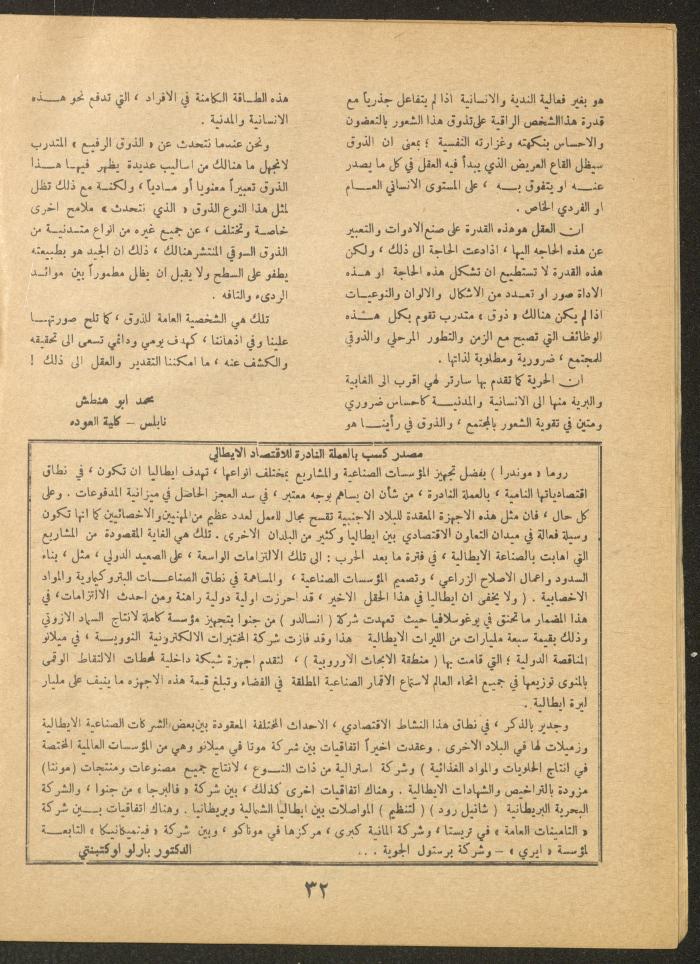 هو بغير فعالية الندية والانسانية اذا لم يتفاعل جذرياً مع
قدرة هذا الشخص الراقية على تذوق هذا الشعور بالتعضون
والاحساس بنكهته وغزارته النفسية ؛ بمعنى ان الذوق
سيظل القاع العريض الذي يبدأ فيه العقل في كل ما يصدر
عنه او يتفوق به ، على المستوى الانساني العام
او الفردي الخاص .
ان العقل هو هذه القدرة على صنع الادوات والتعبير
عن هذه الحاجه اليها ، اذا دعت الحاجة الى ذلك ، ولكن
هذه القدرة لا تستطيع ان تشكل هذه الحاجة او هذه
الاداة صور او تعدد من الاشكال والالوان والنوعيات
اذا لم يكن هنالك « ذوق » متدرب تقوم بكل هذه
الوظائف التي تصبح مع الزمن والتطور المرحلي والذوقي
للمجتمع ، ضرورية ومطلوبة لذاتها .
ان الحرية كما تقدم بها سارتر لهي اقرب الى الغابية
والبرية منها الى الانسانية والمدنية كاحساس ضروري
ومتين في تقوية الشعور بالمجتمع ، والذوق في رأينا هو
هذه الطاقة الكامنة في الافراد ، التي تدفع نحو هذه
الانسانية والمدنية .
ونحن عندما نتحدث عن « الذوق الرفيع » المتدرب
لانجهل ما هنالك من اساليب عديدة يظهر فيها هذا
الذوق تعبيراً معنويا أو مادياً ، ولكنه مع ذلك تظل
لمثل هذا النوع الذوق « الذي نتحدث » ملامح اخرى
خاصة وتختلف ، عن جميع غيره من انواع متدنية من
الذوق السوقي المنتشر هنالك ، ذلك ان الجيد هو بطبيعته
يطفو على السطح ولا يقبل ان يظل مطموراً بين موائد
الردىء والتافه .
تلك هي الشخصية العامة للذوق ، كما تلح صورتها
علينا وفي اذهاننا ، كهدف يومي ودائمي تسعى الى تحقيقه
والكشف عنه ، ما امكننا التقدير والعقل الى ذلك !
محمد ابو هنطش
نابلس – كلية العوده
مصدر كسب بالعملة النادرة للاقتصاد الايطالي
روما « موندرا » بفضل تجهيز المؤسسات الصناعية والمشاريع بمختلف انواعها ، تهدف ايطاليا ان تكون ، في نطاق
اقتصادياتها النامية ، بالعملة النادرة ، من شأن ان يساهم بوجه معتبر ، في سد العجز الحاصل في ميزانية المدفوعات . وعلى
كل حال ، فان مثل هذه الاجهزة المعقدة للبلاد الاجنبية تفسح مجال للعمل لعدد عظيم من المهنيين والاخصائيين كما انها تكون
وسيلة فعالة في ميدان التعاون الاقتصادي بين ايطاليا وكثير من البلدان الاخرى . تلك هي الغاية المقصودة من المشاريع
التي اهابت بالصناعة الايطالية ، في فترة ما بعد الحرب : الى تلك الالتزامات الواسعة ، على الصعيد الدولي ، مثل ، بناء
السدود واعمال الاصلاح الزراعي ، وتصميم المؤسسات الصناعية ، والمساهمة في نطاق الصناعات البتروكيماوية والمواد
الاخصابية . ( ولا يخفى ان ايطاليا في هذا الحقل الاخير ، قد احرزت اولية دولية راهنة ومن احدث الالتزامات، في
هذا المضمار ماتحقق في يوغوسلافيا حيث تعهدت شركة ( انسالدو ) من جنوا بتجهيز مؤسسة كاملة لانتاج السماد الازوتي
وذلك بقيمة سبعة مليارات من الليرات الايطالية هذا وقد فازت شركة المختبرات الالكترونية النوويه ، في ميلانو
المناقصة الدولية ؛ التي قامت بها ( منطقة الابحاث الاوروبية ) ، لتقدم اجهزة شبكة داخلية لمحطات الالتقاط الوقتي
بالمنوى توزيعها في جميع انحاء العالم لاستماع الاقمار الصناعية المطلقة في الفضاء وتبلغ قيمة هذه الاجهزه ما ينيف على مليار
ليرة ايطالية .
وجدير بالذكر ، في نطاق هذا النشاط الاقتصادي ، الاحداث المختلفة المعقودة بين بعض الشركات الصناعية الايطالية
وزميلات لها في البلاد الاخرى . وعقدت اخيراً اتفاقيات بين شركة موتا في ميلانو وهي من المؤسسات العالمية المختصة
في انتاج الحلويات والمواد الغذائية ) وشركة استرالية من ذات النوع ، لانتاج جميع مصنوعات ومنتجات (موتا)
مزودة بالتراخيص والشهادات الايطالية . وهناك اتفاقيات اخرى كذلك ، بين شركة « فالبرجا » من جنوا ، والشركة
البحرية البريطانية ( شانيل رود ) ( لتنظيم ) المواصلات بين ايطاليا الشمالية وبريطانيا . وهناك اتفاقيات بين شركة
« التامينات العامة » في تريستا ، وشركة المانية كبرى ، مركزها في موناكو ، وبين شركة « فينميكانيكا » التابعة
لمؤسسة « ايري » – وشركة برستول الجوية . . . الدكتور بارلو اوكتبنتي
٣٢